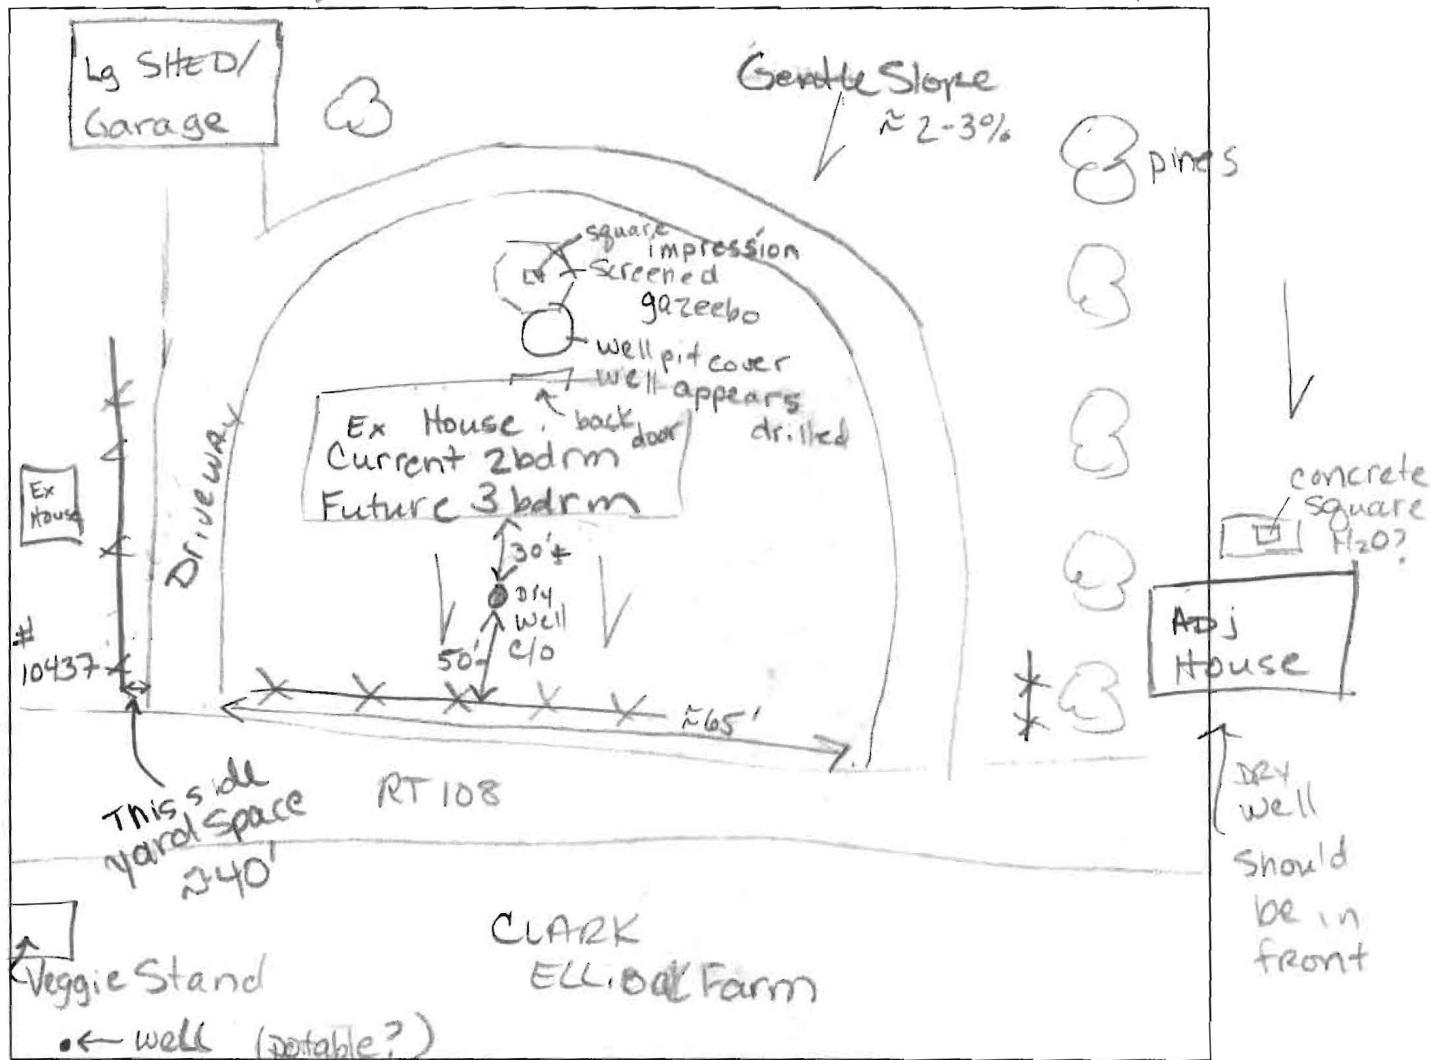 Lg SHED/
Garage
Gentle Slope
≈ 2-3%
pines
square
impression
Screened
gazeebo
well pit cover
well appears
drilled
back
door
Ex House
Current 2bdrm
Future 3 bdrm
Driveway
Ex
House
#
10437
30'±
Dry
Well
c/o
50'
≈65'
concrete
square
H₂O?
ADJ
House
DRY
well
Should
be in
front
This side
yard space
≈40'
RT 108
CLARK
ELLIOAK Farm
Veggie Stand
well (potable?)